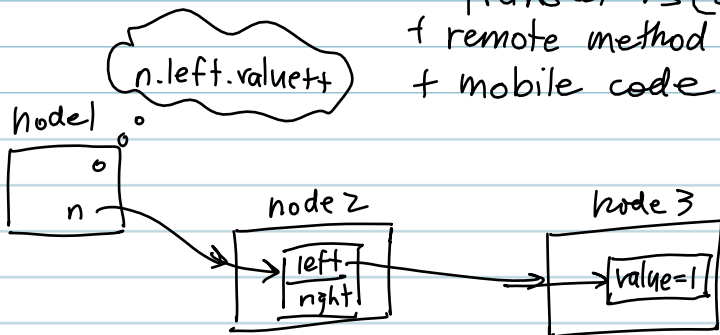 + remote method
n.left.value++
+ mobile code
node1
n
node 2
node 3
left
right
value=1